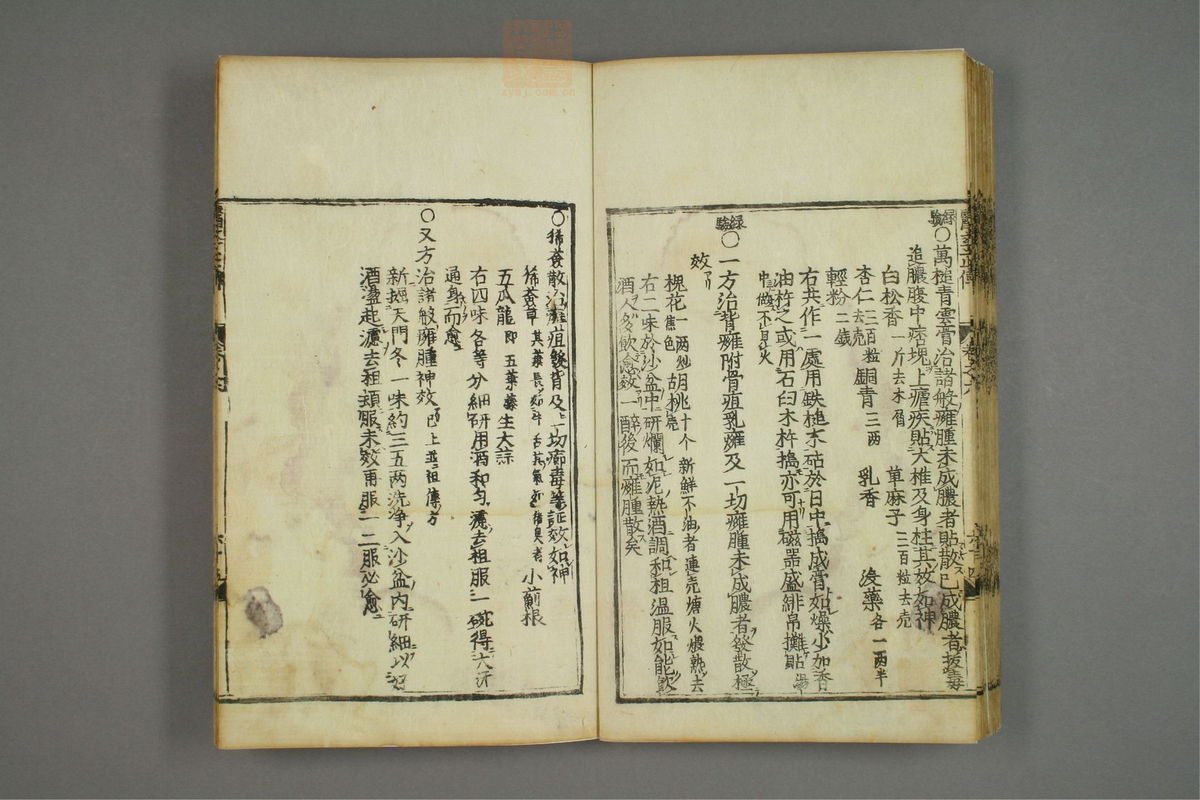 ○萬槌青雲膏治諸般癰腫未成膿者貼散已成膿者拔毒
追膿腹中痞塊上瘧疾貼大椎及身柱其效如神
白松香一斤去木屑 草麻子三百粒去売
杏仁三百粒去売 銅青三两 乳香 沒藥各一两半
輕粉二錢
右共作一處用鉄槌木砧於日中搗成膏如燥少加香
油杵之或用石臼木杵搗亦可用磁器盛緋帛攤貼湯
中做不見火
驗録
○一方治背癰附骨疽乳癰及一切癰腫未成膿者發散極
效
槐花一两炒焦色 胡桃十个新鮮不油者連売煻火煅熟去売
右二味於沙盆中研爛如泥熱酒調和租温服如能飲
酒人多飲愈效一醉後而癰腫散矣
○豨薟散治癰疽發背及一切瘡毒等証效如神
豨薟草 小薊根
五爪龍即五葉藤 生大蒜
右四味各等分細研用酒和勻濾去租服一碗得大汗
通身而愈
○又方治諸般癰腫神效已上並祖傳方
新掘天門冬一味約三五两洗净入沙盆内研細以好
酒盪起濾去租頓服未效再服一二服必愈